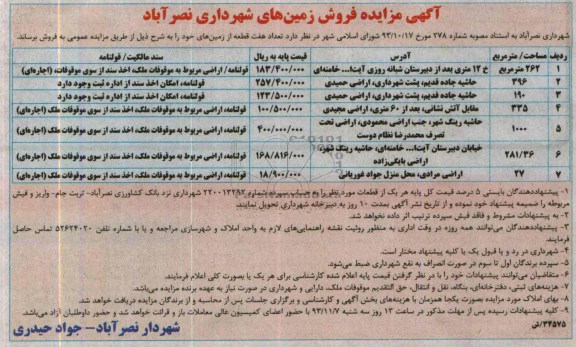 آگهی مزایده فروش زمین‌های شهرداری نصرآباد
شهرداری نصرآباد به استناد مصوبه شماره ۲۷۸ مورخ ۹۳/۱۰/۱۷ شورای اسلامی شهر در نظر دارد تعداد هفت قطعه از زمین‌های خود را به شرح ذیل از طریق مزایده عمومی به فروش برساند.
ردیف مساحت/ مترمربع آدرس قیمت پایه به ریال سند مالکیت/ قولنامه
۱ ۲۶۲ مترمربع خ ۱۲ متری بعد از دبیرستان شبانه روزی آیت‌ا... خامنه‌ای ۱۸۳/۴۰۰/۰۰۰ قولنامه/ اراضی مربوط به موقوفات ملک، اخذ سند از سوی موقوفات، (اجاره‌ای)
۲ ۳۹۶ حاشیه جاده قدیم، پشت شهرداری، اراضی حمیدی ۲۵۷/۴۰۰/۰۰۰ قولنامه، امکان اخذ سند از اداره ثبت وجود دارد
۳ ۱۹۰ حاشیه جاده قدیم، پشت شهرداری، اراضی حمیدی ۱۲۳/۵۰۰/۰۰۰ قولنامه، امکان اخذ سند از اداره ثبت وجود دارد
۴ ۳۳۵ مقابل آتش نشانی، بعد از ۶۰ متری، اراضی مجیدی ۱۰۰/۵۰۰/۰۰۰ قولنامه، اراضی مربوط به موقوفات ملک، اخذ سند از سوی موقوفات ملک (اجاره‌ای)
۵ ۱۰۰۰ حاشیه رینگ شهر، جنب اراضی محمودی، اراضی تحت تصرف محمدرضا نظام دوست ۴۰۰/۰۰۰/۰۰۰ قولنامه، اراضی مربوط به موقوفات ملک، اخذ سند از سوی موقوفات ملک (اجاره‌ای)
۶ ۲۸۱/۳۶ خیابان دبیرستان آیت‌ا... خامنه‌ای، حاشیه رینگ شهر، اراضی بابکی‌زاده ۱۶۸/۸۱۶/۰۰۰ قولنامه، اراضی مربوط به موقوفات ملک، اخذ سند از سوی موقوفات ملک (اجاره‌ای)
۷ ۲۷ اراضی مرادی، محل منزل جواد غوریانی ۱۸/۹۰۰/۰۰۰ قولنامه، اراضی مربوط به موقوفات ملک، اخذ سند از سوی موقوفات ملک (اجاره‌ای)
۱- پیشنهاددهندگان بایستی ۵ درصد قیمت کل پایه هر یک از قطعات مورد نظر را به حساب سپرده شماره شهرداری نزد بانک کشاورزی نصرآباد- تربت جام- واریز و فیش
مربوطه را ضمیمه پیشنهاد خود نموده و از تاریخ نشر آگهی بمدت ۱۰ روز به دبیرخانه شهرداری تحویل نمایند.
۲- به پیشنهادات مشروط و فاقد فیش سپرده ترتیب اثر داده نخواهد شد.
۳- پیشنهاددهندگان می‌توانند همه روزه در وقت اداری به منظور روئیت نقشه راهنمایی‌های لازم به واحد املاک و شهرسازی مراجعه و یا با شماره تلفن ۵۲۶۲۴۰۲۰ تماس حاصل
فرمایند.
۴- شهرداری در رد و یا قبول یک یا کلیه پیشنهاد مختار است.
۵- سپرده برندگان اول تا سوم در صورت انصراف به نفع شهرداری ضبط می‌شود.
۶- متقاضیان می‌توانند پیشنهادات خود را با در نظر گرفتن قیمت پایه اعلام شده کارشناسی برای هر یک یا بصورت کلی اعلام فرمایند.
۷- هزینه‌های ثبتی، دفترخانه‌ای، بنگاه، نقل و انتقال، حق التقدیم موقوفات ملک، دارایی و شهرداری در صورت نیاز به عهده برنده مزایده می‌باشد.
۸- بهای املاک مورد مزایده بصورت یکجا همزمان با هزینه‌های بخش آگهی و کارشناسی و برگزاری جلسات پس از محاسبه و از برندگان مزایده دریافت خواهد شد.
۹- کلیه پیشنهادات رسیده پس از مهلت مذکور در ساعت ۱۲ روز سه شنبه ۹۳/۱۱/۷ با حضور اعضای کمیسیون عالی معاملات باز و قرائت خواهد شد و حضور داوطلبان آزاد می‌باشد.
۳۴۵۷۵/ش
شهردار نصرآباد- جواد حیدری